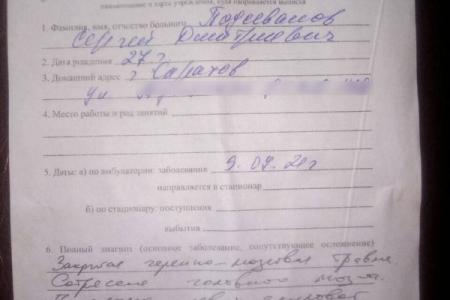 наименование и адрес учреждения, куда направляется выписка
1. Фамилия, имя, отчество больного Подсеванов
Сергей Дмитриевич
2. Дата рождения 27 г
3. Домашний адрес г Карачев
ул
4. Место работы и род занятий
5. Даты: а) по амбулатории: заболевания 9.07.21г
направляется в стационар
б) по стационару: поступления
выбытия
6. Полный диагноз (основное заболевание, сопутствующее осложнение)
Закрытая черепно-мозговая травма
Сотрясение головного мозга.